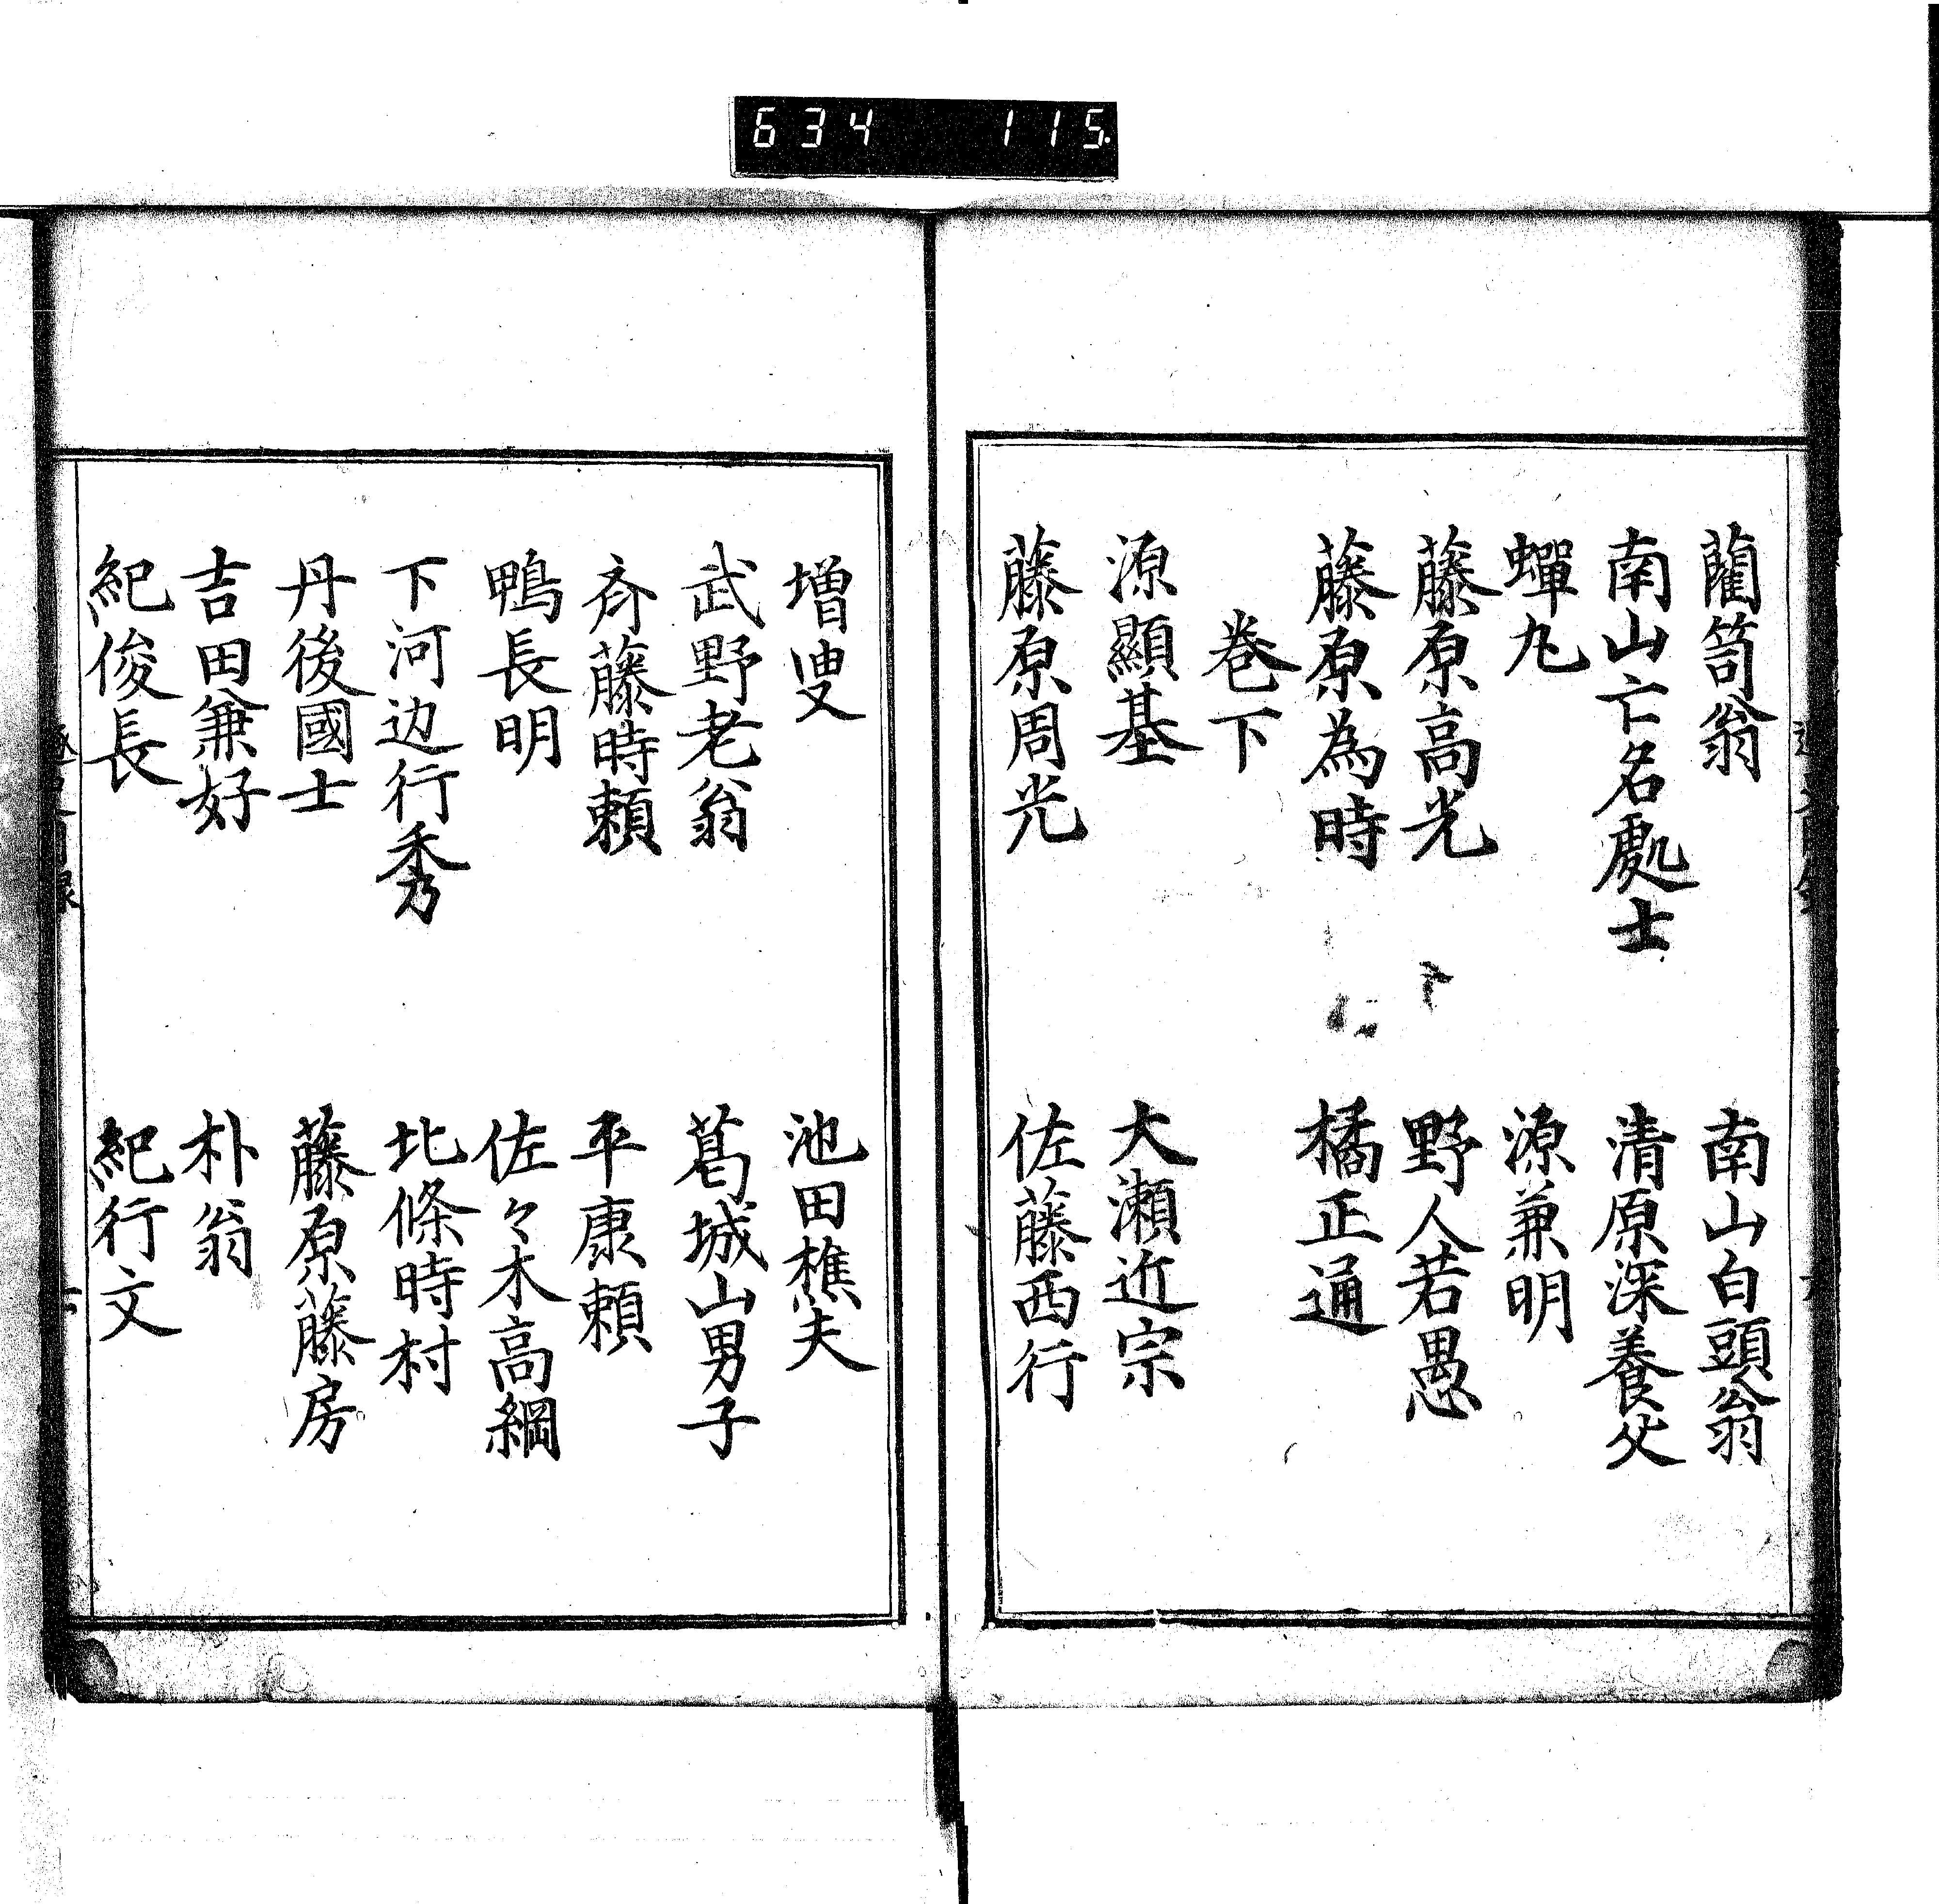 634 115
藺笥翁 南山白頭翁
南山亡名處士 清原深養父
蟬丸 源兼明
藤原高光 野人若愚
藤原為時 橘正通
卷下
源顯基 大瀬近宗
藤原周光 佐藤西行
増叟 池田樵夫
武野老翁 葛城山男子
斉藤時頼 平康頼
鴨長明 佐々木高綱
下河边行秀 北條時村
丹後國士 藤原藤房
吉田兼好 朴翁
紀俊長 紀行文